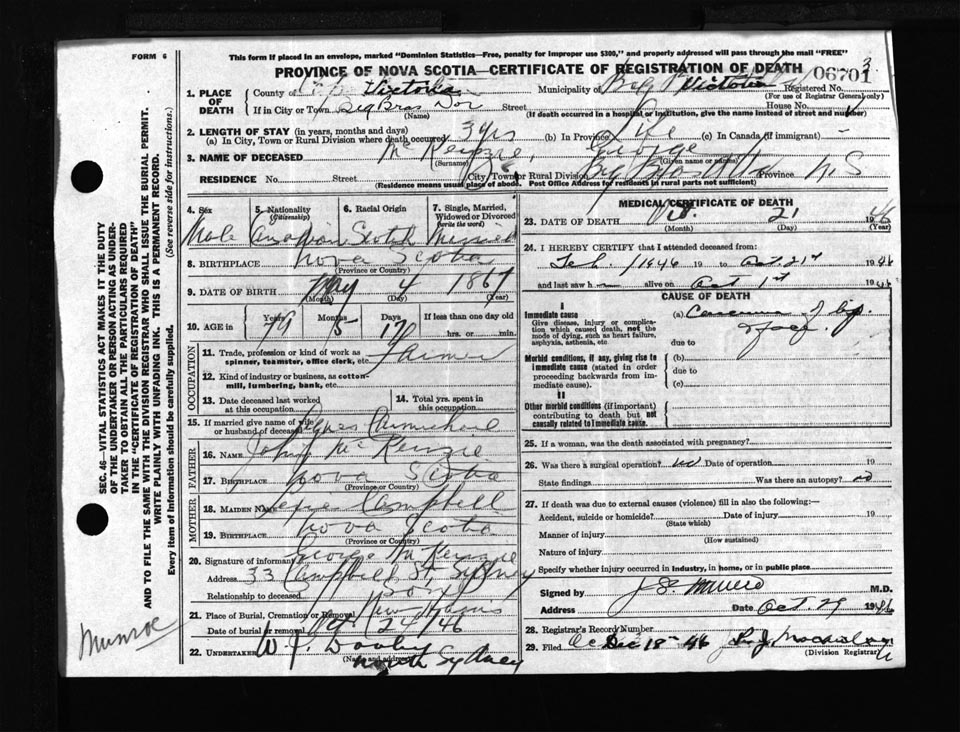 FORM 6
This form if placed in an envelope, marked "Dominion Statistics—Free, penalty for improper use $300," and properly addressed will pass through the mail "FREE"
PROVINCE OF NOVA SCOTIA—CERTIFICATE OF REGISTRATION OF DEATH
06701
3
1. PLACE OF DEATH
County of Victoria Municipality of Victoria Registered No.
(For use of Registrar General only)
If in City or Town Big Bras Dor Street House No.
(If death occurred in a hospital or institution, give the name instead of street and number)
2. LENGTH OF STAY (in years, months and days)
(a) In City, Town or Rural Division where death occurred 3 yrs (b) In Province Life (c) In Canada (if immigrant) -
3. NAME OF DECEASED McKenzie, George
(Surname) (Given name or names)
RESIDENCE No. Street City, Town or Rural Division Province N S
(Residence means usual place of abode. Post Office Address for residents in rural parts not sufficient)
4. Sex Male
5. Nationality (Citizenship) Canadian
6. Racial Origin Scotch
7. Single, Married, Widowed or Divorced (write the word) Married
8. BIRTHPLACE Nova Scotia
(Province or Country)
9. DATE OF BIRTH May 4 1867
(Month) (Day) (Year)
10. AGE in Years 79 Months 5 Days 17 If less than one day old
hrs. or min.
OCCUPATION
11. Trade, profession or kind of work as spinner, teamster, office clerk, etc. Farmer
12. Kind of industry or business, as cotton-mill, lumbering, bank, etc.
13. Date deceased last worked at this occupation
14. Total yrs. spent in this occupation
15. If married give name of wife or husband of deceased Agnes Carmichael
FATHER
16. Name John McKenzie
17. Birthplace Nova Scotia
(Province or Country)
MOTHER
18. Maiden Name Campbell
19. Birthplace Nova Scotia
(Province or Country)
20. Signature of informant George McKenzie
Address 33 Campbell St, Sydney
Relationship to deceased son
21. Place of Burial, Cremation or Removal New Harris
Date of burial or removal 24/46
22. UNDERTAKER W. J. Dooley
(Name and address) North Sydney
MEDICAL CERTIFICATE OF DEATH
23. DATE OF DEATH Oct. 21 1946
(Month) (Day) (Year)
24. I HEREBY CERTIFY that I attended deceased from:
Feb. 1 1946 19 to Oct. 21st 1946
and last saw h alive on Oct 1st 1946
CAUSE OF DEATH
I
Immediate cause
Give disease, injury or complication which caused death, not the mode of dying, such as heart failure, asphyxia, asthenia, etc.
(a) Carcinoma of lip
& face
due to
Morbid conditions, if any, giving rise to immediate cause (stated in order proceeding backwards from immediate cause).
(b)
due to
(c)
II
Other morbid conditions (if important) contributing to death but not causally related to immediate cause.
25. If a woman, was the death associated with pregnancy?
26. Was there a surgical operation? no Date of operation 19
State findings Was there an autopsy? no
27. If death was due to external causes (violence) fill in also the following:—
Accident, suicide or homicide? Date of injury 19
(State which)
Manner of injury
(How sustained)
Nature of injury
Specify whether injury occurred in industry, in home, or in public place
Signed by M.D.
Address Date Oct. 29 1946
28. Registrar's Record Number
29. Filed Dec 18 46
(Division Registrar)
SEC. 46—VITAL STATISTICS ACT MAKES IT THE DUTY OF THE UNDERTAKER OR PERSON ACTING AS UNDERTAKER TO OBTAIN ALL THE PARTICULARS REQUIRED IN THE "CERTIFICATE OF REGISTRATION OF DEATH" AND TO FILE THE SAME WITH THE DIVISION REGISTRAR WHO SHALL ISSUE THE BURIAL PERMIT.
WRITE PLAINLY WITH UNFADING INK. THIS IS A PERMANENT RECORD.
Every item of Information should be carefully supplied.
(See reverse side for instructions.)
Munroe